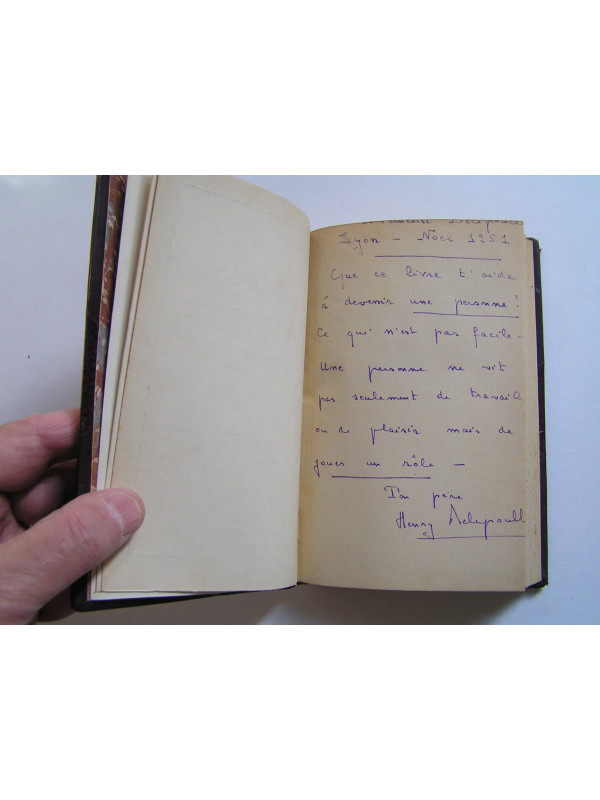 Lyon - Noël 1951
Que ce livre t'aide
à devenir une personne !
Ce qui n'est pas facile -
Une personne ne vit
pas seulement de travail
ou de plaisir mais de
jouer un rôle -
Ton père
Henry